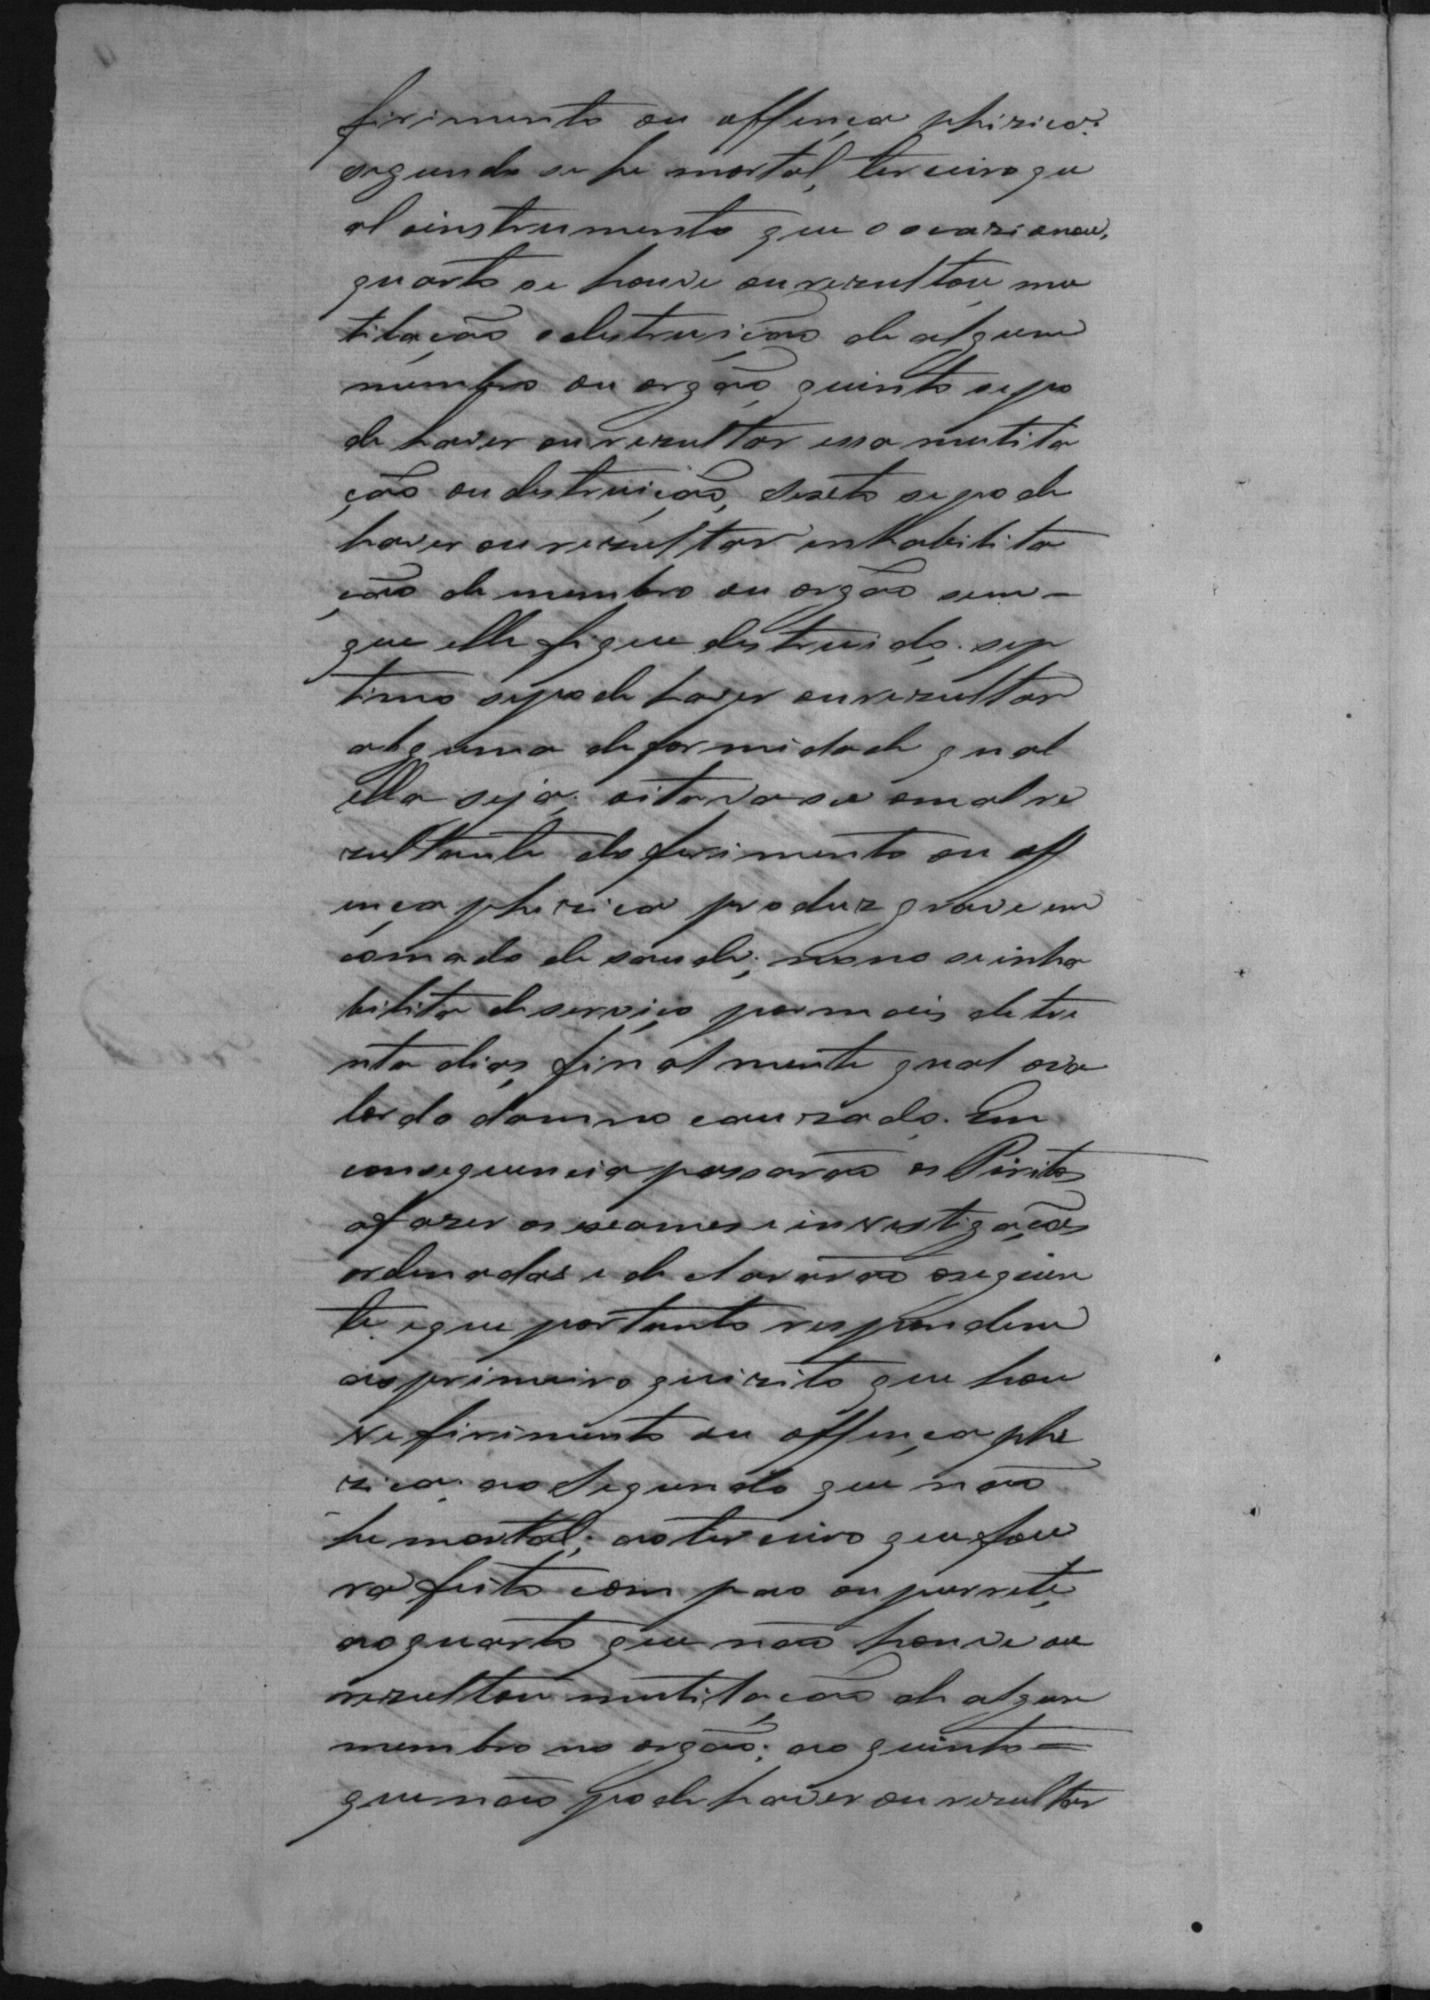 firimento ou offença phizica:
segundo se he mortal, terceiro qu
al oinstrumento que o ocazionou,
quarto se houve ou rezultou mu
tilação odestruição de algum
membro ou orgão, quinto se po
de haver ou rezultar essa mutila
ção ou destruição, sexto se pode
haver ou rezultar inhabilita
ção de membro ou orgão sem-
que elle fique destruido. sep
timo se pode haver ou rezultar
alguma deformidade qual
ella seja; oitavo se o mal re
zultante do ferimento ou off
ença phizica produz grave em
comado de saude; nono se inha
bilita de serviço por mais de tri
nta dias, finalmente qual o va
lor do damno cauzado. Em
consequencia passarão os Piritos
a fazer os exames e investigações
ordenadas e declararão o seguin
te, e que portanto respondem
ao primeiro quizito que hou
ve firimento ou offença phi
zica; ao Segundo que não
he mortal; ao terceiro que fou
ra feito com pao ou porrete,
ao quarto que não houve ou
rezultou mutilação de algum
membro no orgão; ao quinto=
que não pode haver ou rezultar